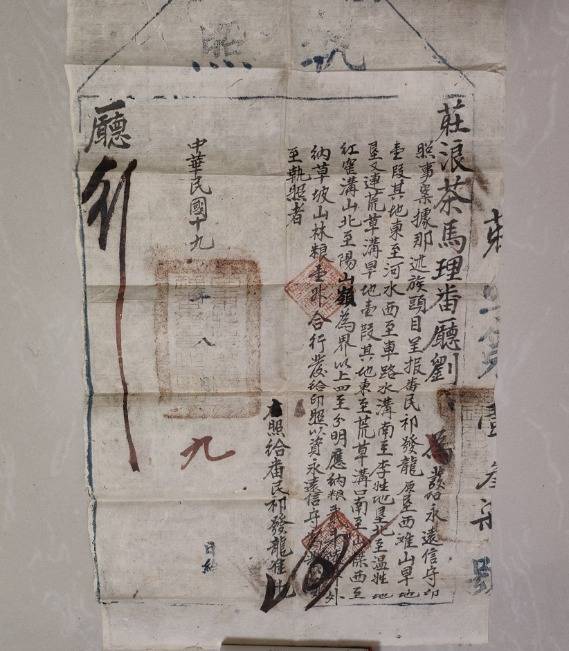 執照
莊浪茶馬理番廳劉 為發給永遠信守印
照事案據那述族頭目呈报番民祁發龍原垦西难山旱地
壹段其地東至河水西至車路水溝南至李姓地垦北至温姓地
垦又連荒草溝旱地壹段其地東至荒草溝口南至山 西至
紅窑溝山北至陽山嶺為界以上四至分明應納粮 外
納草坡山林粮壹 外合行發给印照以資永遠信守
至執照者
右照给番民祁發龍准此
中華民國十九年八月
九
日給
廳 行
壹 叁 号